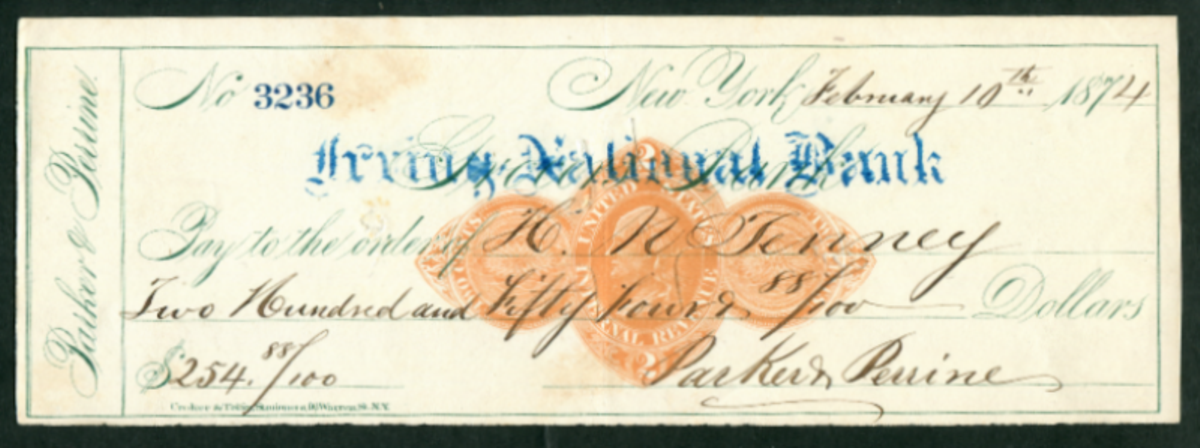 Parker & Perrine.
No 3236
New York, February 10th 1874
Irving National Bank
Pay to the order of H. N Tenney
Two Hundred and Fifty Four & 88/100 Dollars
$254.88/100
Parker & Perrine
UNITED STATES
INTERNAL REVENUE
2